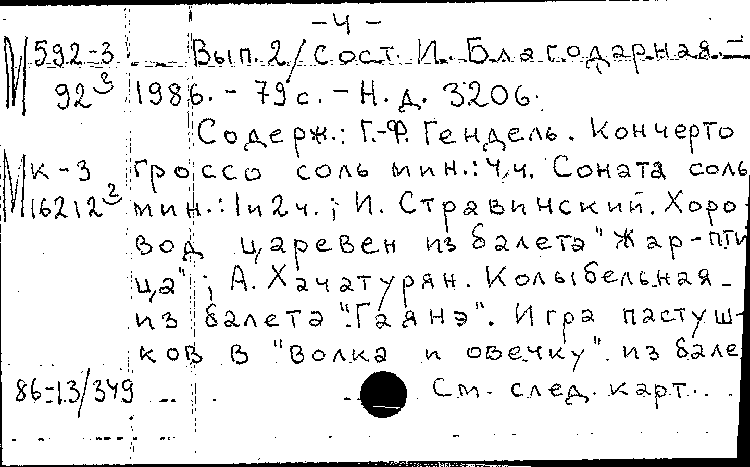 -4-
М 592-3 Вып. 2/Сост. И. Благодарная.-
92э 1986.-79с.-Н.д. 3206.
Содерж.: Г.-Ф. Гендель. Кончерто
М к-3 гроссо соль мин.: 4ч. Соната соль
16212э мин.: 1и2ч.; И. Стравинский. Хоро-
вод царевен из балета "Жар-пти
ца"; А. Хачатурян. Колыбельная
из балета "Гаянэ". Игра пастуш-
ков в "волка и овечку" из бале
86-13/349 См. след. карт.